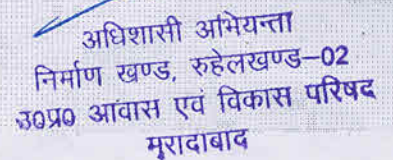 अधिशासी अभियन्ता
निर्माण खण्ड, रुहेलखण्ड–02
उ0प्र0 आवास एवं विकास परिषद
मुरादाबाद